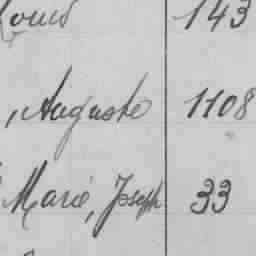 Louis 143
, Auguste 1108
Marie, Joseph 33